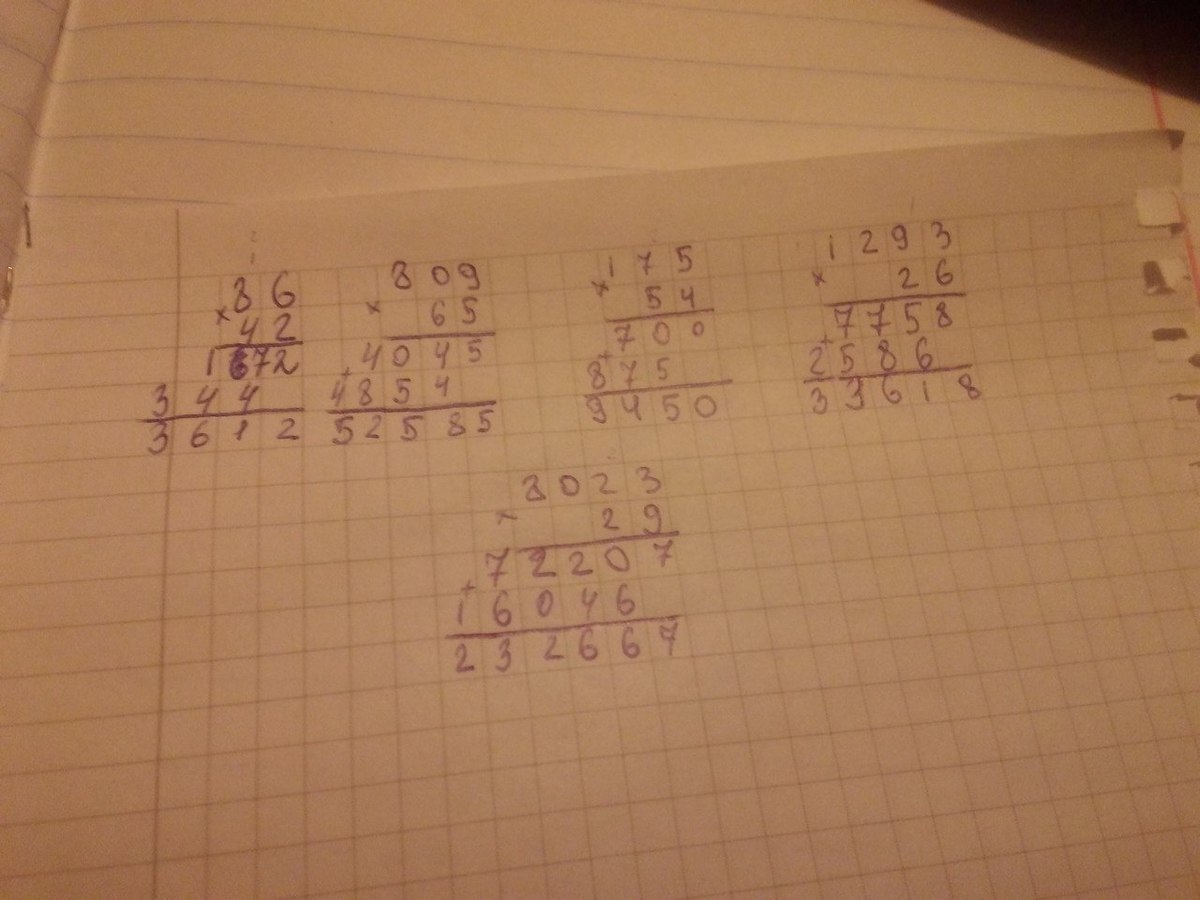 86
× 42
1672
344
3612
809
× 65
4045
+ 4854
52585
175
× 54
700
+ 875
9450
1293
× 26
7758
+ 2586
33618
8023
× 29
72207
+ 16046
232667